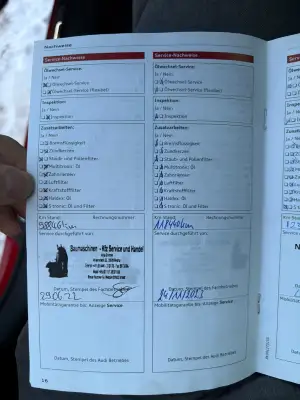 Nachweise
Service-Nachweise
Ölwechsel-Service
Ja / Nein
Ölwechsel-Service
Ölwechsel-Service (flexibel)
Inspektion:
Ja / Nein
Inspektion
Zusatzarbeiten:
Ja / Nein
Bremsflüssigkeit
Zündkerzen
Staub- und Pollenfilter
Multitronic: Öl
Zahnriemen
Luftfilter
Kraftstofffilter
Haldex: Öl
S tronic: Öl und Filter
Km-Stand: Rechnungsnummer:
Service durchgeführt von:
Baumaschinen - Kfz Service und Handel
Datum, Stempel des Fachbetriebs
23.06.22
Mobilitätsgarantie bis Anzeige Service
Datum, Stempel des Audi Betriebes
16
Service-Nachweise
Ölwechsel-Service:
Ja / Nein
Ölwechsel-Service
Ölwechsel-Service (flexibel)
Inspektion:
Ja / Nein
Inspektion
Zusatzarbeiten:
Ja / Nein
Bremsflüssigkeit
Zündkerzen
Staub- und Pollenfilter
Multitronic: Öl
Zahnriemen
Luftfilter
Kraftstofffilter
Haldex: Öl
S tronic: Öl und Filter
Km-Stand: Rechnungsnummer:
Service durchgeführt von:
Datum, Stempel des Fachbetriebs
24/11/2023
Mobilitätsgarantie bis Anzeige Service
Datum, Stempel des Audi Betriebes